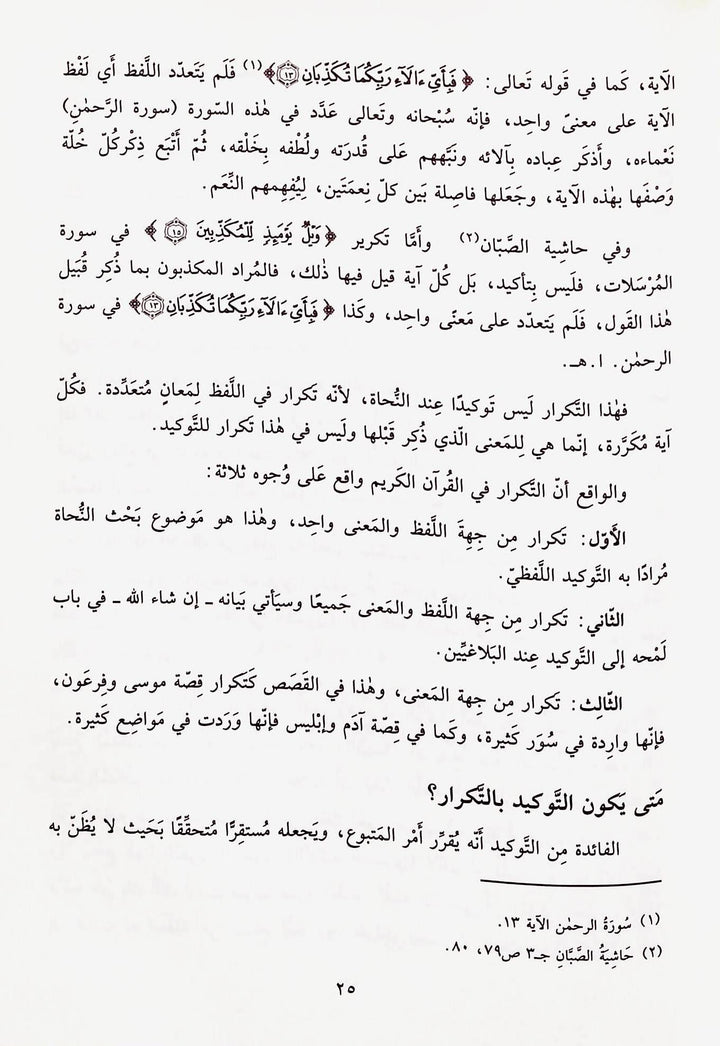 الآية، كَما في قَوله تَعالى: ﴿ فَبِأَيِّ ءَالَآءِ رَبِّكُمَا تُكَذِّبَانِ ١٣ ﴾(١) فَلَم يَتَعدّد اللَّفظ أي لَفْظ
الآية على معنىً واحِد، فإنّه سُبْحانه وتَعالى عَدَّد في هٰذه السّورة (سورة الرَّحمٰنِ)
نَعْماءه، وأَذكَر عِباده بِآلائه ونَبَّههم عَلى قُدرَته ولُطْفه بِخَلْقه، ثُمّ أَتْبَع ذِكْركُلّ خُلّة
وَصْفَها بهٰذه الآية، وجَعَلها فاصِلة بَين كلّ نِعمَتَين، لِيُفِهِمهم النِّعَم.
وفي حاشِية الصَّبّان(٢) وأَمَّا تَكرير ﴿ وَيْلٌ يَوْمَئِذٍ لِّلْمُكَذِّبِينَ ١٥ ﴾ في سورة
المُرْسَلات، فلَيس بِتأكيد، بَل كُلّ آية قيل فيها ذٰلك، فالمُراد المكذبون بما ذُكِر قُبَيل
هٰذا القَول، فَلَم يَتعدّد على مَعنًى واحِد، وكَذا ﴿ فَبِأَيِّ ءَالَآءِ رَبِّكُمَا تُكَذِّبَانِ ١٣ ﴾ في سورة
الرحمٰن. ا.هـ.
فهٰذا التَّكرار لَيس تَوكيدًا عِند النُّحاة، لأنّه تَكرار في اللَّفظ لِمَعانٍ مُتعَدِّدة. فكُلّ
آية مُكرَّرة، إنّما هي لِلمَعنى الّذي ذُكِر قَبْلها ولَيس في هٰذا تَكرار للتَّوكيد.
والواقِع أنّ التَّكرار في القُرآن الكَريم واقِع عَلى وُجوه ثلاثة:
الأَوّل: تَكرار مِن جِهةَ اللَّفظ والمَعنى واحِد، وهٰذا هو مَوضوع بَحْث النُّحاة
مُرادًا به التَّوكيد اللَّفظيّ.
الثّاني: تَكرار مِن جِهة اللَّفظ والمَعنى جَميعًا وسيَأتي بَيانه ـ إن شاء الله ـ في باب
لَمْحه إلى التَّوكيد عِند البَلاغيِّين.
الثّالِث: تَكرار مِن جِهة المَعنى، وهٰذا في القَصَص كَتَكرار قِصّة موسى وفِرعَون،
فإنّها وارِدة في سُوَر كَثيرة، وكَما في قِصّة آدَم وإبْليس فإنّها وَرَدت في مَواضِع كَثيرة.
مَتى يَكون التَّوكيد بالتَّكرار؟
الفائدة مِن التَّوكيد أنَّه يُقرِّر أَمْر المَتبوع، ويَجعله مُستقِرًّا مُتحقِّقًا بَحَيث لا يُظَنّ به
(١) سُورَةُ الرحمٰن الآية ١٣.
(٢) حَاشِيَةُ الصَّبَّانِ جـ٣ ص٧٩، ٨٠.
٢٥